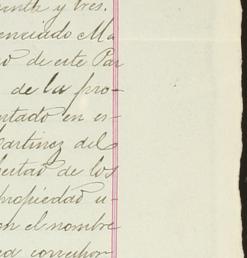 einta y tres.
enciado Ma
o de este Par
de la pro-
entado en es-
artinez del
bertad de los
propiedad u-
on el nombre